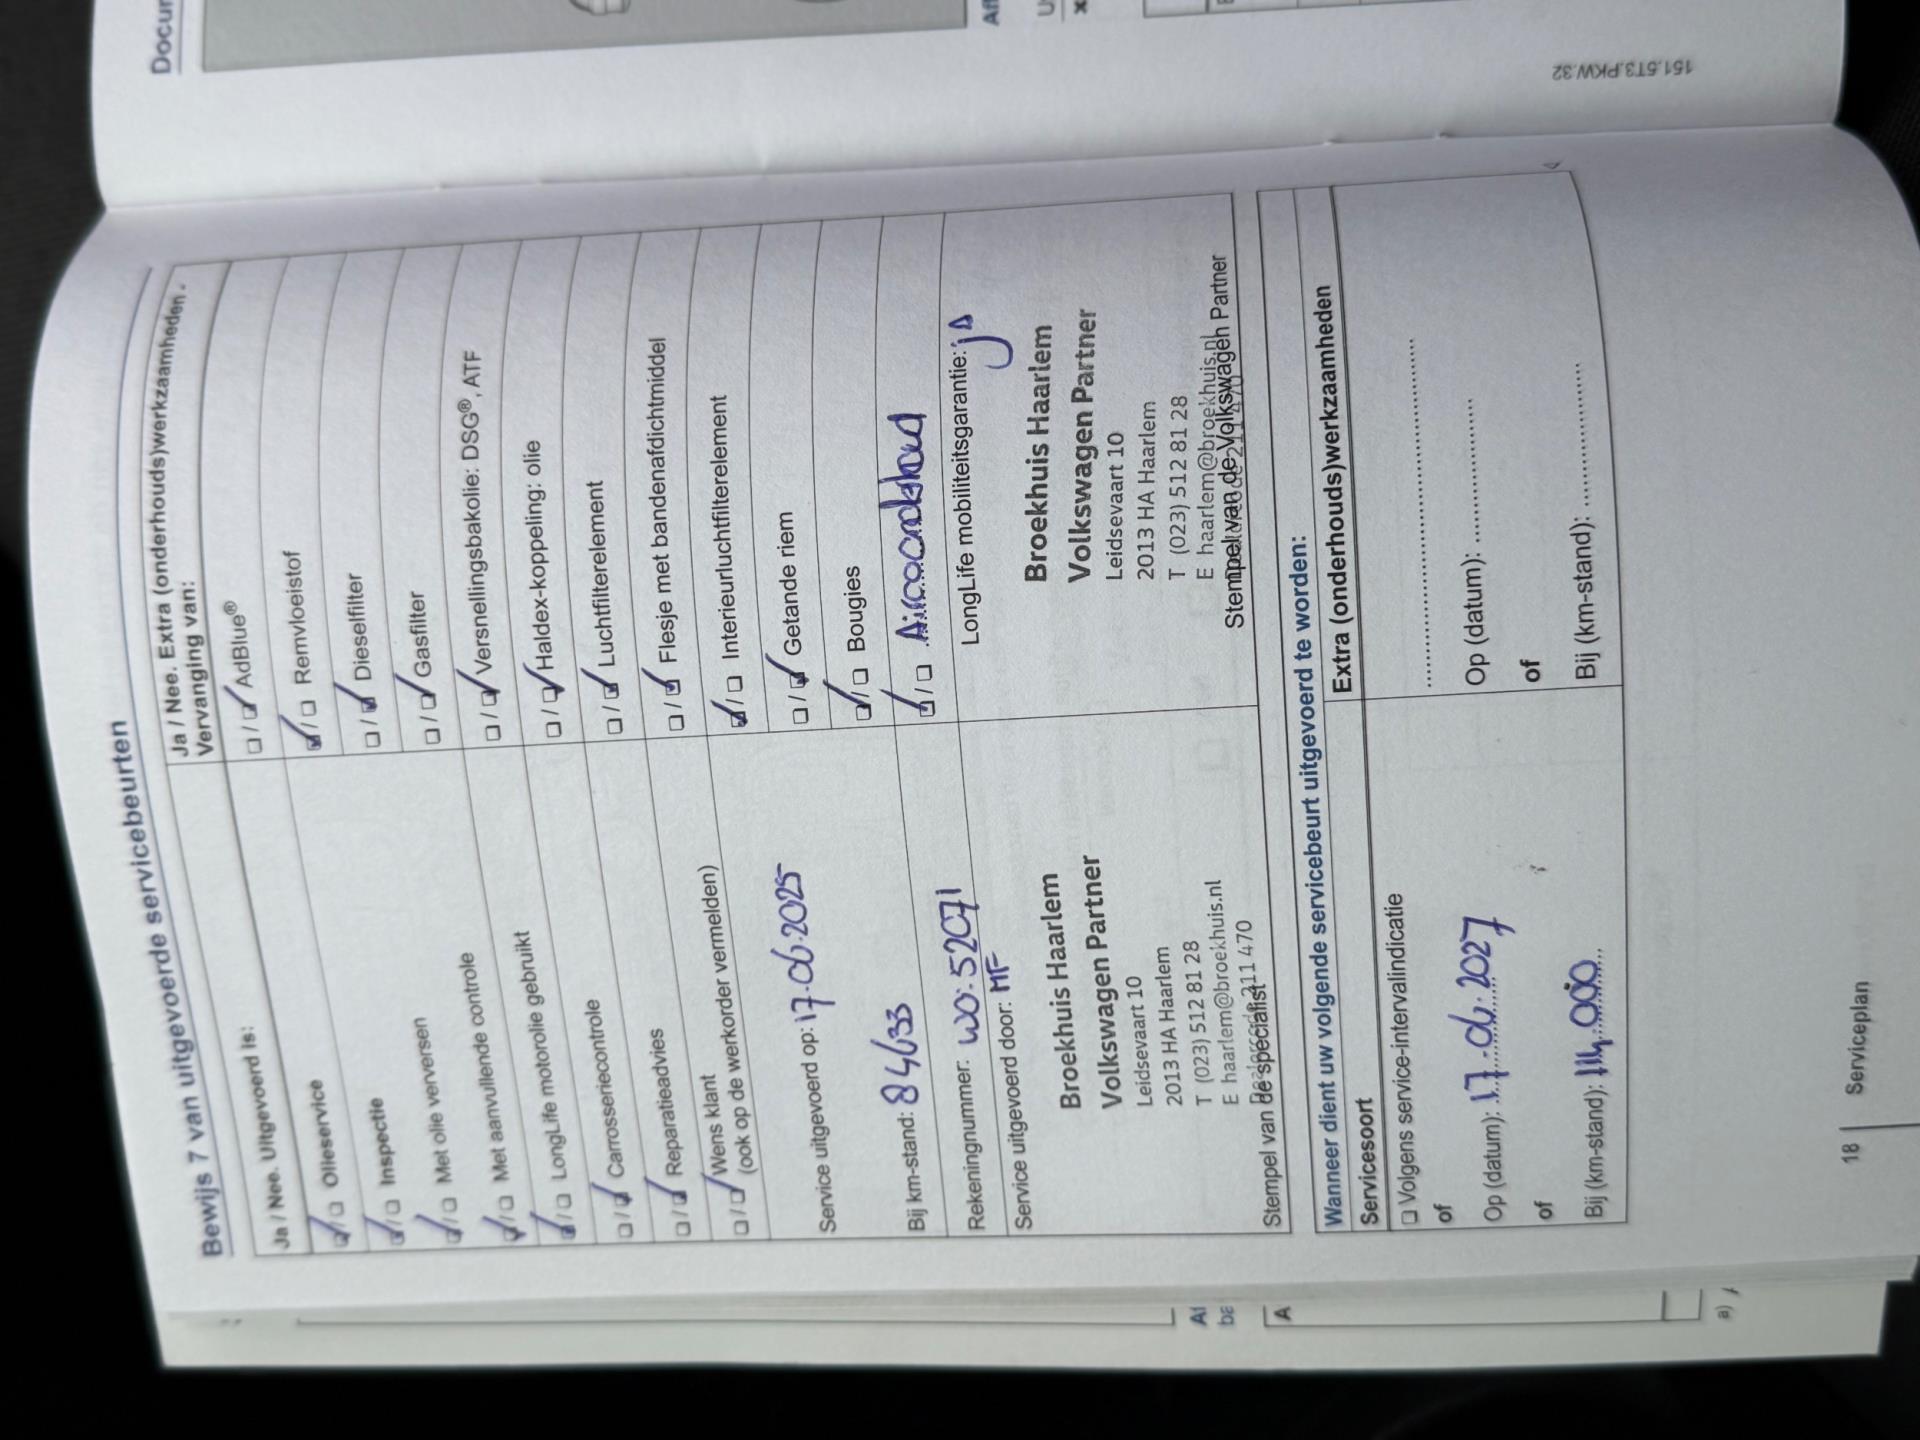 Bewijs 7 van uitgevoerde servicebeurten
Ja / Nee. Uitgevoerd is:
☑/☐ Olieservice
☑/☐ Inspectie
☑/☐ Met olie verversen
☑/☐ Met aanvullende controle
☑/☐ LongLife motorolie gebruikt
☐/☑ Carrosseriecontrole
☐/☑ Reparatieadvies
☐/☑ Wens klant
(ook op de werkorder vermelden)
Service uitgevoerd op: 17-06-2025
Bij km-stand: 84633
Rekeningnummer: WO: 52071
Service uitgevoerd door: MF
Broekhuis Haarlem
Volkswagen Partner
Leidsevaart 10
2013 HA Haarlem
T (023) 512 81 28
E haarlem@broekhuis.nl
Dealercode 211 470
Stempel van de specialist
Ja / Nee. Extra (onderhouds)werkzaamheden.
Vervanging van:
☐/☑ AdBlue®
☑/☐ Remvloeistof
☐/☑ Dieselfilter
☐/☑ Gasfilter
☐/☑ Versnellingsbakolie: DSG®, ATF
☐/☑ Haldex-koppeling: olie
☐/☑ Luchtfilterelement
☐/☑ Flesje met bandenafdichtmiddel
☑/☐ Interieurluchtfilterelement
☐/☑ Getande riem
☑/☐ Bougies
☑/☐
LongLife mobiliteitsgarantie: ja
Broekhuis Haarlem
Volkswagen Partner
Leidsevaart 10
2013 HA Haarlem
T (023) 512 81 28
E haarlem@broekhuis.nl
Dealercode 211 470
Stempel van de Volkswagen Partner
Wanneer dient uw volgende servicebeurt uitgevoerd te worden:
Servicesoort
☐ Volgens service-intervalindicatie
of
Op (datum): 17-06-2027
of
Bij (km-stand): 114.000
Extra (onderhouds)werkzaamheden
Op (datum):
of
Bij (km-stand):
18 Serviceplan
151.5T3.PKW.32
Docum
Af
ba
A
a)